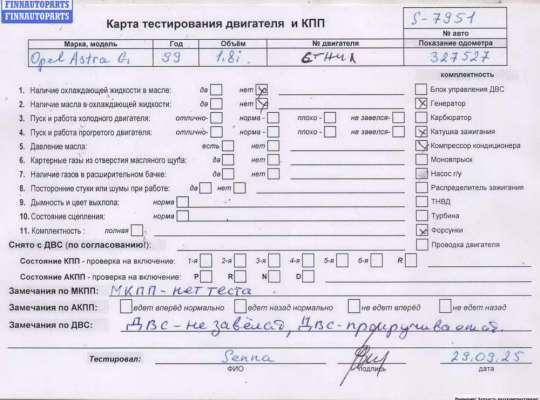 FINNAUTOPARTS
FINNAUTOPARTS
Карта тестирования двигателя и КПП
S-7951
№ авто
Марка, модель Год Объём № двигателя Показание одометра
Opel Astra G, 99 1.8i 327527
комплектность
1. Наличие охлаждающей жидкости в масле: да нет Блок управления ДВС
2. Наличие масла в охлаждающей жидкости: да нет Генератор
3. Пуск и работа холодного двигателя: отлично- норма - плохо - не завелся- Карбюратор
4. Пуск и работа прогретого двигателя: отлично- норма - плохо - не завелся- Катушка зажигания
5. Давление масла: есть нет Компрессор кондиционера
6. Картерные газы из отверстия масляного щупа: да нет Моновпрыск
7. Наличие газов в расширительном бачке: да нет Насос г/у
8. Посторонние стуки или шумы при работе: да нет Распределитель зажигания
9. Дымность и цвет выхлопа: норма ТНВД
10. Состояние сцепления: норма Турбина
11. Комплектность : полная Форсунки
Снято с ДВС (по согласованию!): Проводка двигателя
Состояние КПП - проверка на включение: 1-я 2-я 3-я 4-я 5-я 6-я R
Состояние АКПП - проверка на включение: P R N D
Замечания по МКПП: МКПП-нет теста
Замечания по АКПП: едет вперёд нормально едет назад нормально не едет вперёд не едет назад
Замечания по ДВС: ДВС-не завёлся, ДВС-прокручивается.
Тестировал: Senna 29.09.25
ФИО подпись дата